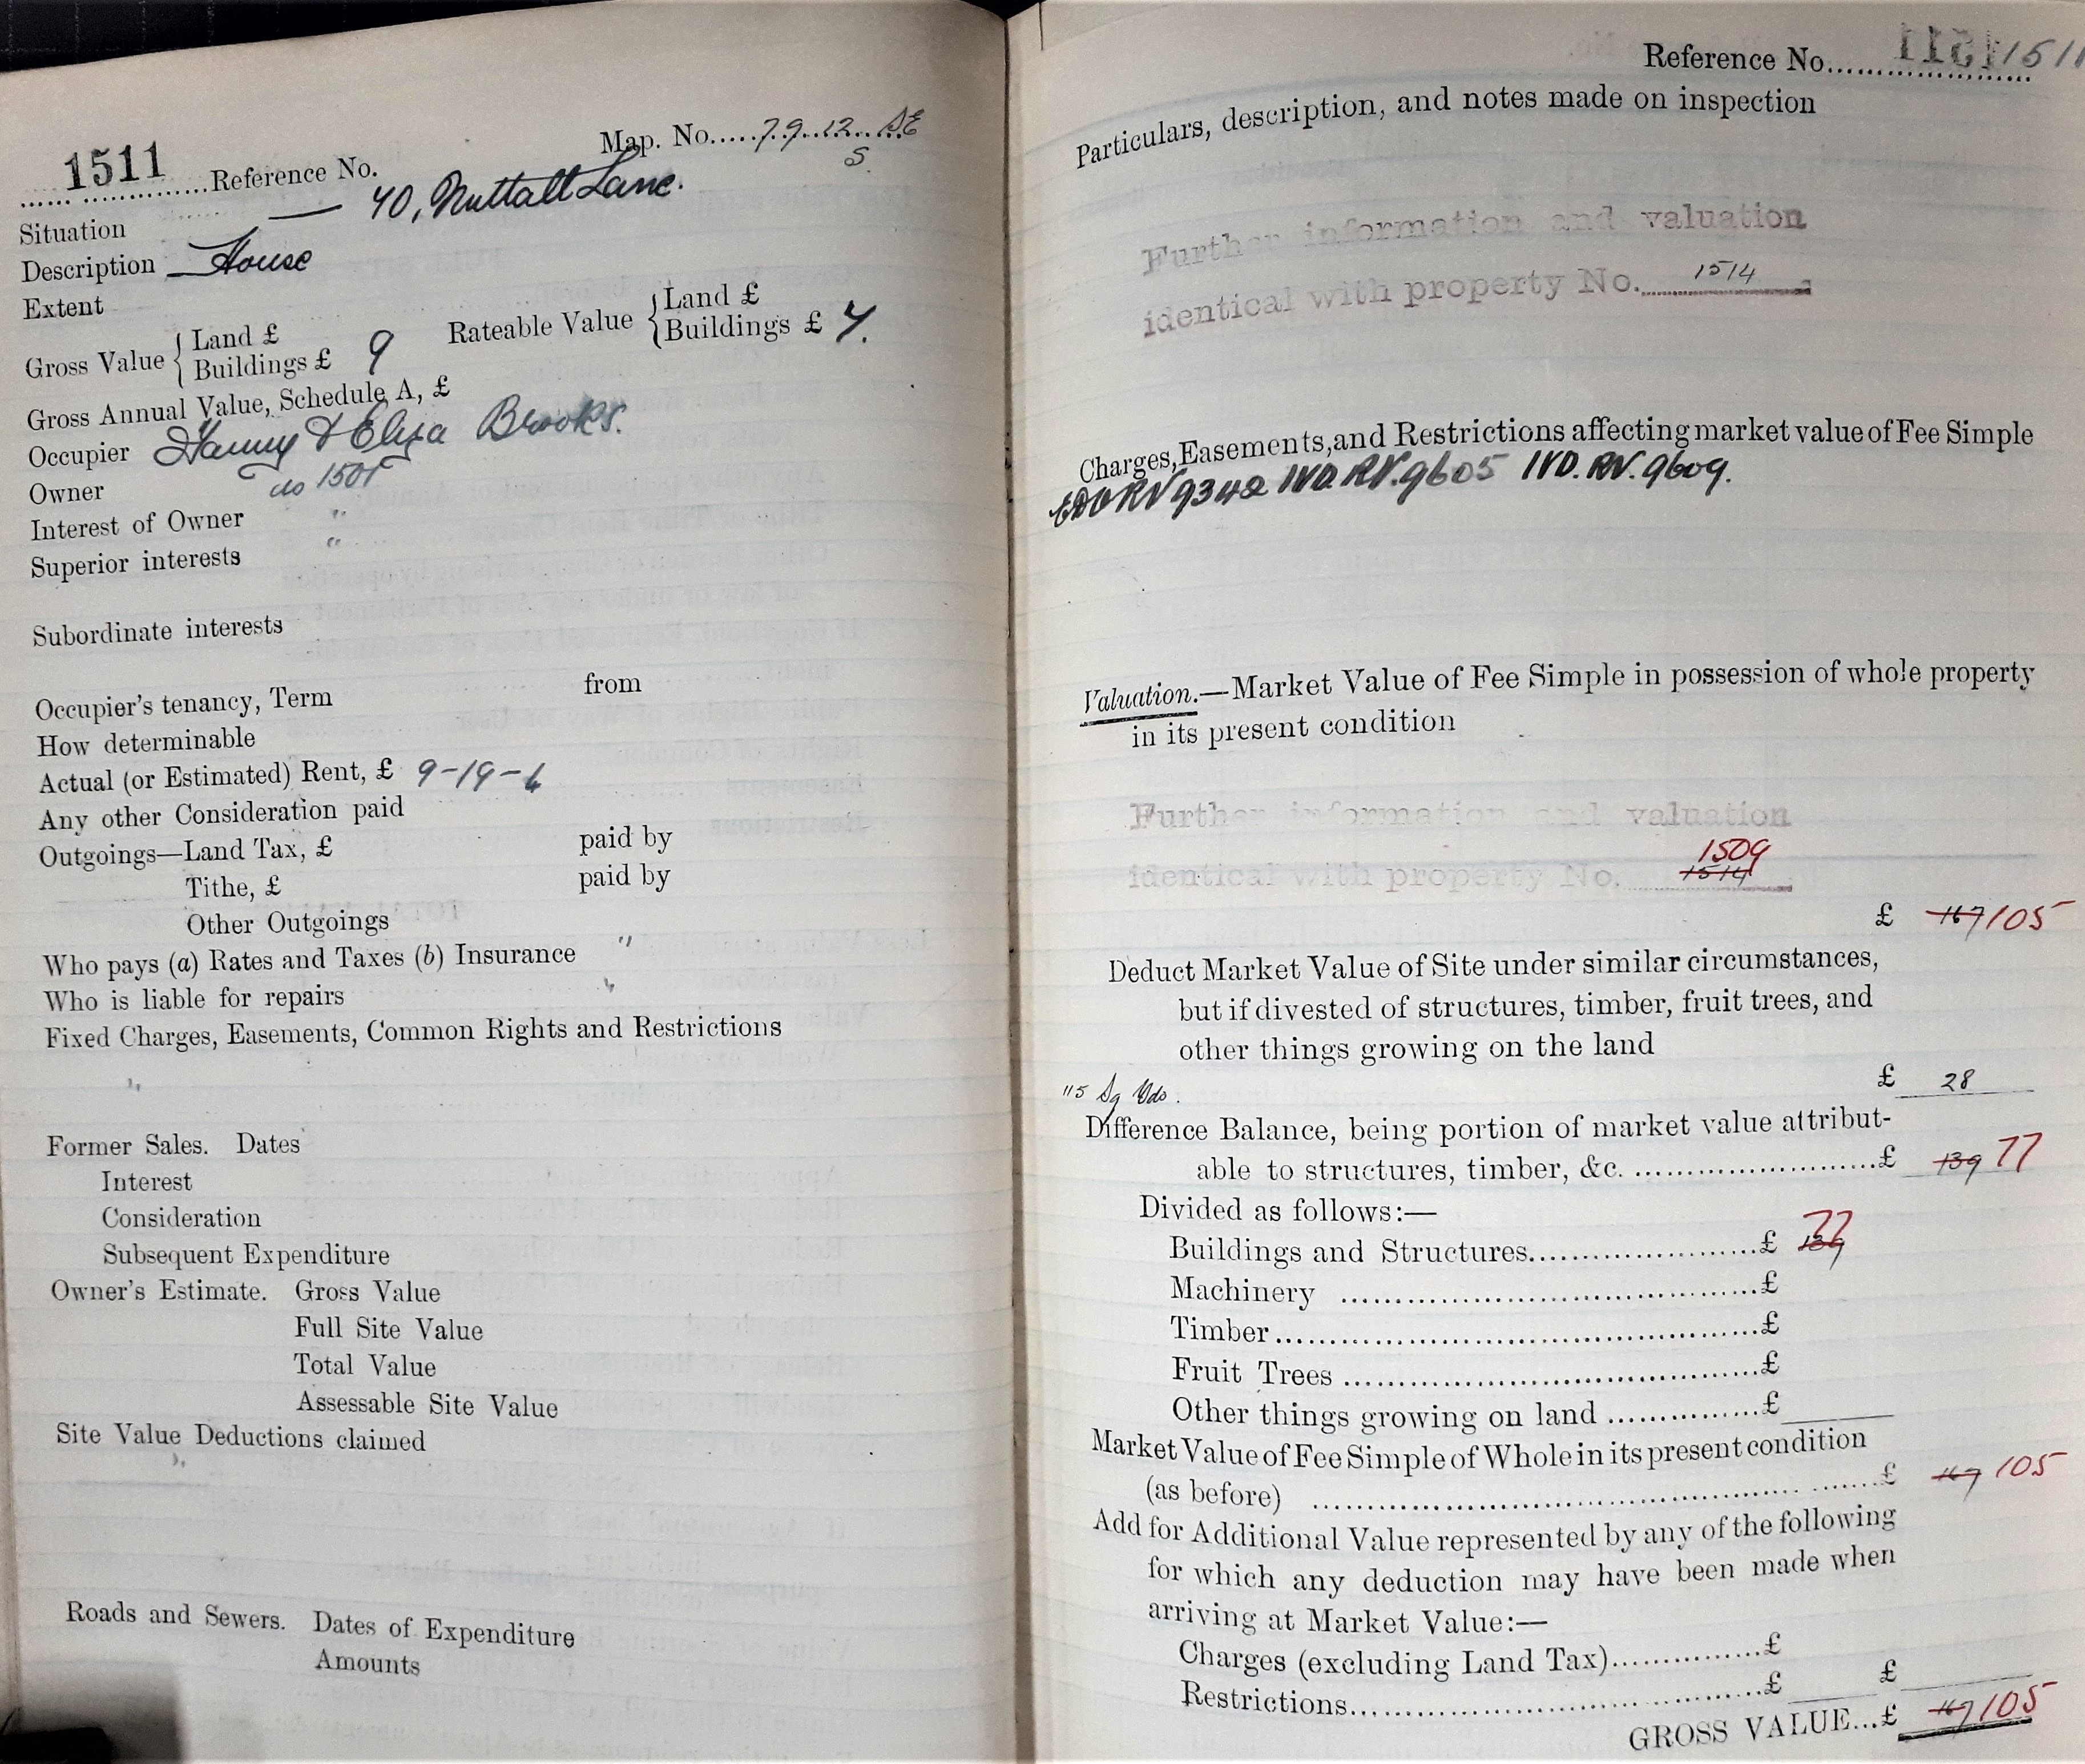 1511 Reference No. Map. No. 79.12. SE
S.
Situation — 40, Nuttall Lane.
Description House
Extent
Gross Value { Land £
Buildings £ 9
Rateable Value { Land £
Buildings £ 7.
Gross Annual Value, Schedule A, £
Occupier & Eliza Brooks.
Owner do
Interest of Owner "
Superior interests "
Subordinate interests
Occupier's tenancy, Term from
How determinable
Actual (or Estimated) Rent, £ 9-19-4
Any other Consideration paid
Outgoings—Land Tax, £ paid by
Tithe, £ paid by
Other Outgoings
Who pays (a) Rates and Taxes (b) Insurance "
Who is liable for repairs "
Fixed Charges, Easements, Common Rights and Restrictions
"
Former Sales. Dates
Interest
Consideration
Subsequent Expenditure
Owner's Estimate. Gross Value
Full Site Value
Total Value
Assessable Site Value
Site Value Deductions claimed
"
Roads and Sewers. Dates of Expenditure
Amounts
Reference No. 1511
Particulars, description, and notes made on inspection
Further information and valuation
identical with property No. 1514
Charges, Easements, and Restrictions affecting market value of Fee Simple
RV 9342 IVD. RV. 9605 IVD. RV. 9609.
Valuation.—Market Value of Fee Simple in possession of whole property
in its present condition
Further information and valuation
1509
identical with property No. 1514
£ 167 105
Deduct Market Value of Site under similar circumstances,
but if divested of structures, timber, fruit trees, and
other things growing on the land
115 Sq Yds. £ 28
Difference Balance, being portion of market value attribut-
able to structures, timber, &c. £ 139 77
Divided as follows:—
Buildings and Structures £ 139 77
Machinery £
Timber £
Fruit Trees £
Other things growing on land £
Market Value of Fee Simple of Whole in its present condition
(as before) £ 167 105
Add for Additional Value represented by any of the following
for which any deduction may have been made when
arriving at Market Value:—
Charges (excluding Land Tax) £
Restrictions £ £
GROSS VALUE...£ 167 105